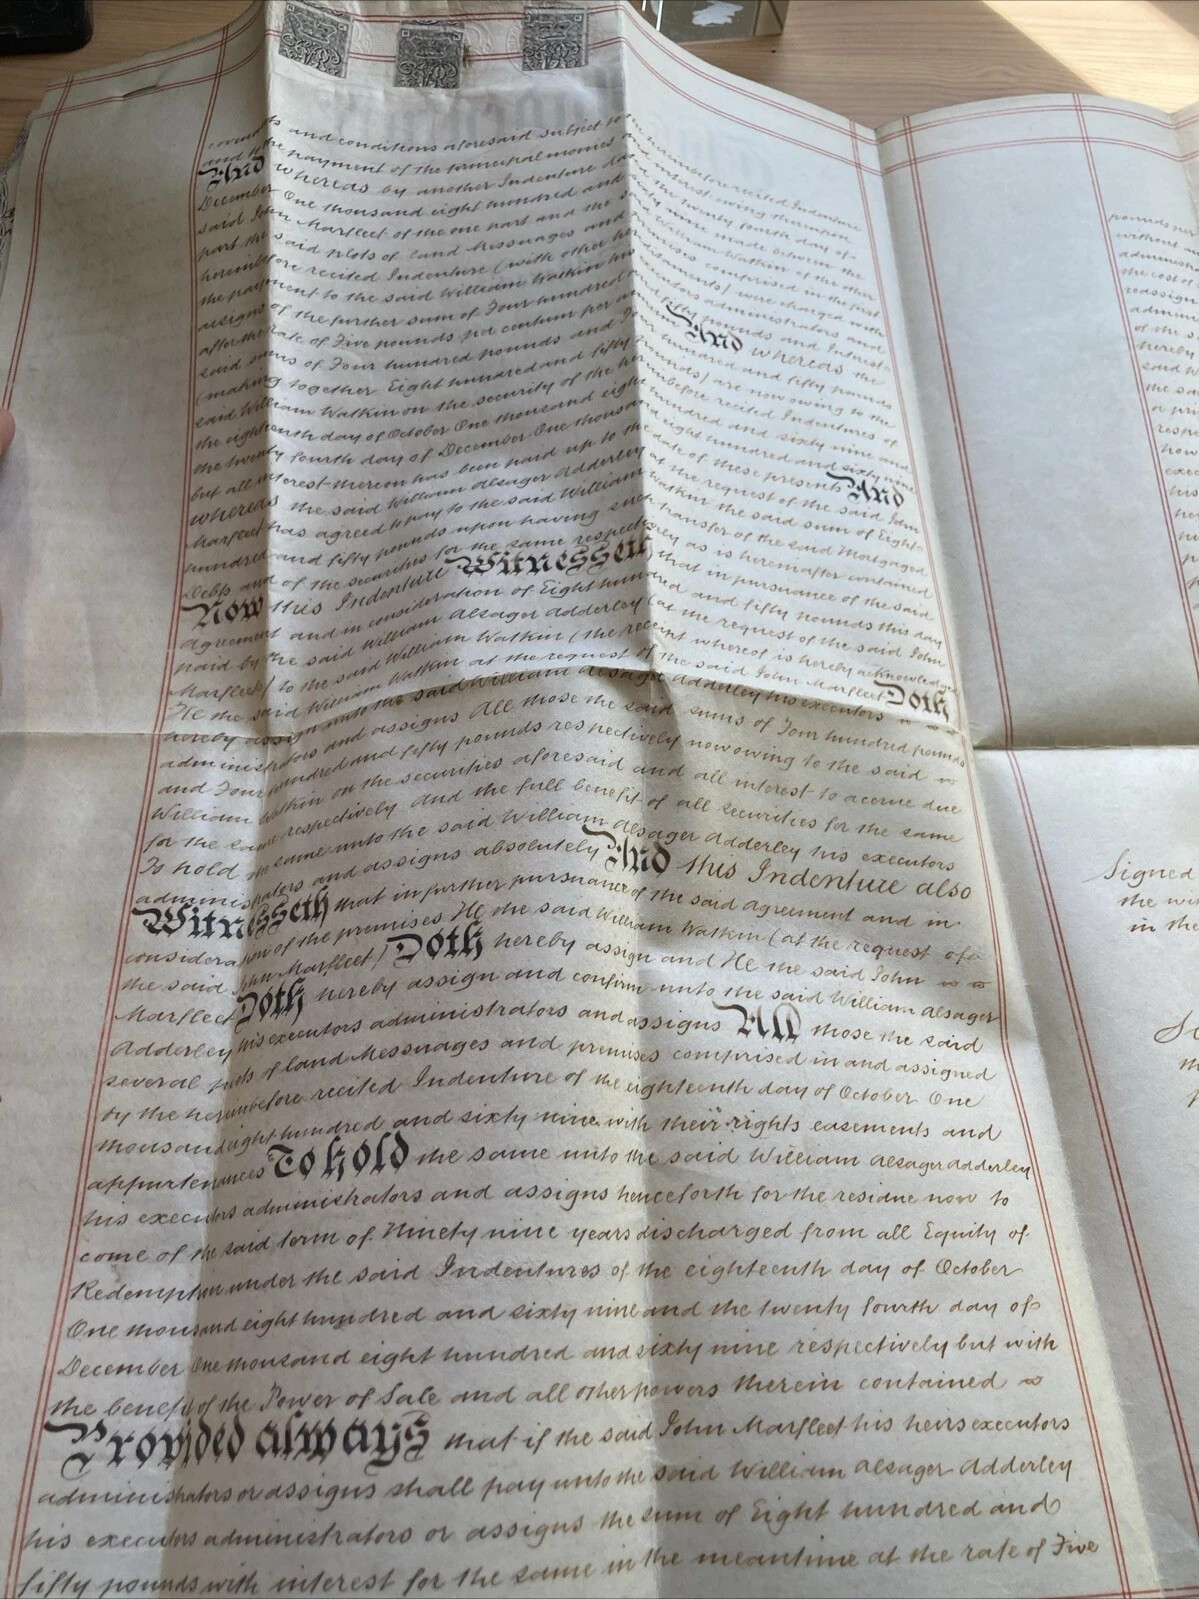 covenants and conditions aforesaid subject to
and to the payment of the principal monies and interest owing thereupon
And whereas by another Indenture dated the twenty fourth day of
December One thousand eight hundred and sixty nine made between the
said John Marfleet of the one part and the said William Watkin of the other
part the said plots of land Messuages and premises comprised in the first
hereinbefore recited Indenture (with other hereditaments) were charged with
the payment to the said William Watkin his executors administrators and
assigns of the further sum of Four hundred and fifty pounds and Interest
after the rate of Five pounds per centum per annum And whereas the
said sums of Four hundred pounds and Four hundred and fifty pounds
(making together Eight hundred and fifty pounds) are now owing to the
said William Watkin on the security of the hereinbefore recited Indentures of
the eighteenth day of October One thousand eight hundred and sixty nine and
the twenty fourth day of December One thousand eight hundred and sixty nine
but all interest thereon has been paid up to the date of these presents And
whereas the said William Alsager Adderley at the request of the said John
Marfleet has agreed to pay to the said William Watkin the said sum of Eight
hundred and fifty pounds upon having such transfer of the said Mortgaged
Debts and of the securities for the same respectively as is hereinafter contained
Now this Indenture Witnesseth that in pursuance of the said
Agreement and in consideration of Eight hundred and fifty pounds this day
paid by the said William Alsager Adderley (at the request of the said John
Marfleet) to the said William Watkin (the receipt whereof is hereby acknowledged)
He the said William Watkin at the request of the said John Marfleet Doth
hereby assign unto the said William Alsager Adderley his executors
administrators and assigns All those the said sums of Four hundred pounds
and Four hundred and fifty pounds respectively now owing to the said
William Watkin on the securities aforesaid and all interest to accrue due
for the same respectively And the full benefit of all securities for the same
To hold the same unto the said William Alsager Adderley his executors
administrators and assigns absolutely And this Indenture also
Witnesseth that in further pursuance of the said Agreement and in
consideration of the premises He the said William Watkin (at the request of
the said John Marfleet) Doth hereby assign and He the said John
Marfleet Doth hereby assign and confirm unto the said William Alsager
Adderley his executors administrators and assigns All those the said
several plots of land Messuages and premises comprised in and assigned
by the hereinbefore recited Indenture of the eighteenth day of October One
thousand eight hundred and sixty nine with their rights easements and
appurtenances To hold the same unto the said William Alsager Adderley
his executors administrators and assigns henceforth for the residue now to
come of the said term of Ninety nine years discharged from all Equity of
Redemption under the said Indentures of the eighteenth day of October
One thousand eight hundred and sixty nine and the twenty fourth day of
December One thousand eight hundred and sixty nine respectively but with
the benefit of the Power of Sale and all other powers therein contained
Provided always that if the said John Marfleet his heirs executors
administrators or assigns shall pay unto the said William Alsager Adderley
his executors administrators or assigns the sum of Eight hundred and
fifty pounds with interest for the same in the meantime at the rate of Five
pounds per
without
the cost of
of the
hereby
said
Signed
in the